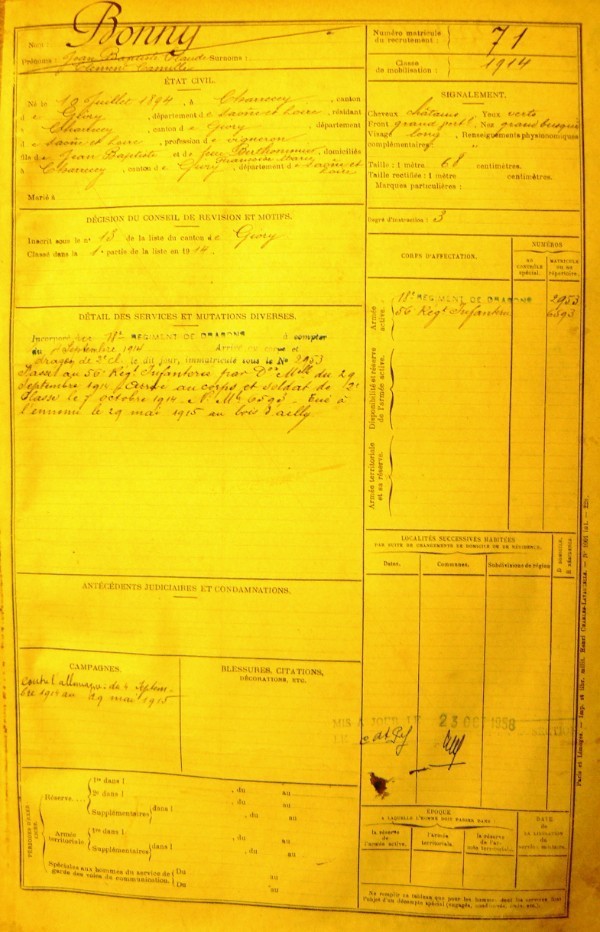 Nom : Bonny
Prénoms : Jean Baptiste Claude Surnoms :
Clément Camille
ÉTAT CIVIL.
Né le 10 Juillet 1894, à Charrecey, canton
de Givry, département de Saône et Loire, résidant
à Charrecey, canton de Givry, département
de Saône et Loire, profession de vigneron
fils de Jean Baptiste et de feue Berthommier, domiciliés
Marie
à Charrecey, canton de Givry, département de Saône et
Loire
Marié à
DÉCISION DU CONSEIL DE REVISION ET MOTIFS.
Inscrit sous le n° 13 de la liste du canton de Givry
Classé dans la 1e partie de la liste en 1914.
DÉTAIL DES SERVICES ET MUTATIONS DIVERSES.
Incorporé au 11e REGIMENT DE DRAGONS à compter
du Septembre 1914 Arrivé au corps et
dragon de 2e cl. le dit jour, immatriculé sous le N° 2953
Passé au 56e Régt Infanterie par Don Mlle du 29
Septembre 1914. Arrivé au corps et soldat de 2e
Classe le 7 octobre 1914. N° Mle 6593. Tué à
l'ennemi le 29 mai 1915 au bois d'ailly
ANTÉCÉDENTS JUDICIAIRES ET CONDAMNATIONS.
CAMPAGNES.
Contre l'allemagne de 4 Septem-
bre 1914 au 29 mai 1915
BLESSURES, CITATIONS,
DÉCORATIONS, ETC.
PÉRIODES D'EXERCICES
Réserve....
1re dans l , du au
2e dans l , du au
Supplémentaires dans l , du au
Armée
territoriale
1re dans l , du au
Supplémentaires dans l , du au
Spéciales aux hommes du service de
garde des voies de communication.
Du au
Du au
Numéro matricule
du recrutement : 71
Classe
de mobilisation : 1914
SIGNALEMENT.
Cheveux châtains Yeux verts
Front grand Nez grand busqué
Visage long Renseignements physionomiques
complémentaires :
Taille : 1 mètre 68 centimètres.
Taille rectifiée : 1 mètre centimètres.
Marques particulières :
Degré d'instruction : 3
CORPS D'AFFECTATION.
NUMÉROS
AU
CONTRÔLE
SPÉCIAL.
MATRICULE
OU AU
RÉPERTOIRE.
Armée
active.
11e REGIMENT DE DRAGONS 2953
56e Régt Infanterie 6593
Disponibilité et réserve
de l'armée active.
Armée territoriale
et sa réserve.
LOCALITÉS SUCCESSIVES HABITÉES
PAR SUITE DE CHANGEMENTS DE DOMICILE OU DE RÉSIDENCE.
Dates.
Communes.
Subdivisions de région
D domicile.
R résidence.
MIS A JOUR LE 23 OCT 1958
LE
ÉPOQUE
A LAQUELLE L'HOMME DOIT PASSER DANS :
la réserve
de l'armée active.
l'armée
territoriale.
la réserve
de l'ar-
mée territoriale.
DATE
de
LA LIBÉRATION
du
service militaire.
Ne remplir ce tableau que pour les hommes dont les services font
l'objet d'un décompte spécial (engagés, condamnés, omis, etc.).
Paris et Limoges. — Imp. et lib. milit. Henri CHARLES-LAVAUZELLE.